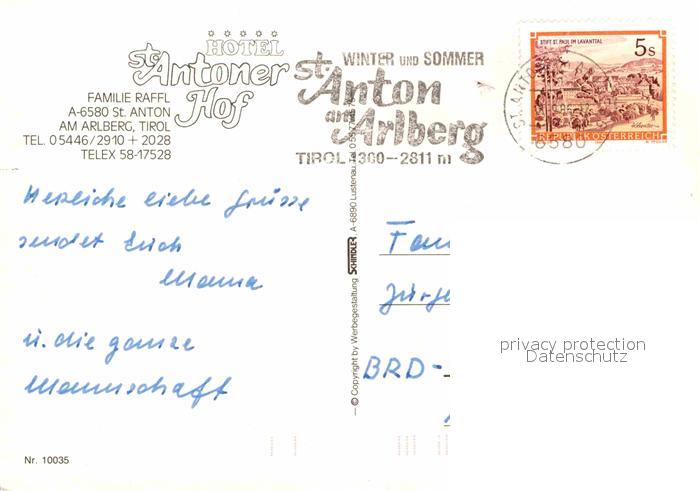 HOTEL
St. Antoner
Hof
FAMILIE RAFFL
A-6580 St. ANTON
AM ARLBERG, TIROL
TEL. 05446/2910 + 2028
TELEX 58-17528
WINTER UND SOMMER
St. Anton
am Arlberg
TIROL 1300–2811 m
STIFT ST. PAUL IM LAVANTTAL
5s
REPUBLIK ÖSTERREICH
ST. ANTON
6580
Herzliche liebe Grüsse
sendet Euch
Mama
u. die ganze
Mannschaft
© Copyright by Werbegestaltung SCHINDLER, A-6890 Lustenau
Fam
Jürge
BRD-
privacy protection
Datenschutz
Nr. 10035